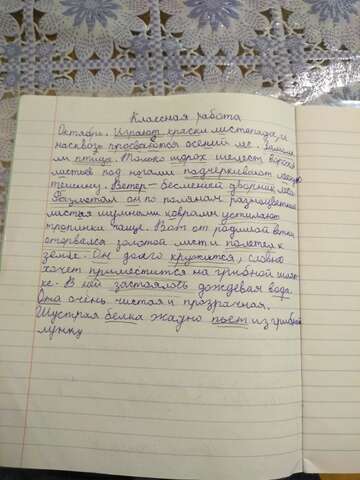 Классная работа
Октябрь. Играют краски листопада, и
насквозь просвечивются осений лес. Замол
ли птица. Только шорох шелест вороха
листьев под ногами подчёркивают лесную
тешину. Ветер - бесменей дворник леса
Разметал он по полянам разноцветные
листья шумными коврами устилают
тропинки чаще. Вот от родимой ветки
оторвался золотой лист и полетел к
земле. Он долго кружится, словно
хочет приместится на грибной шляп
ке. В ней застоялось дождевая вода.
Она очень чистая и прозрачная.
Шустрая белка жадно пьет из грибной
лунку